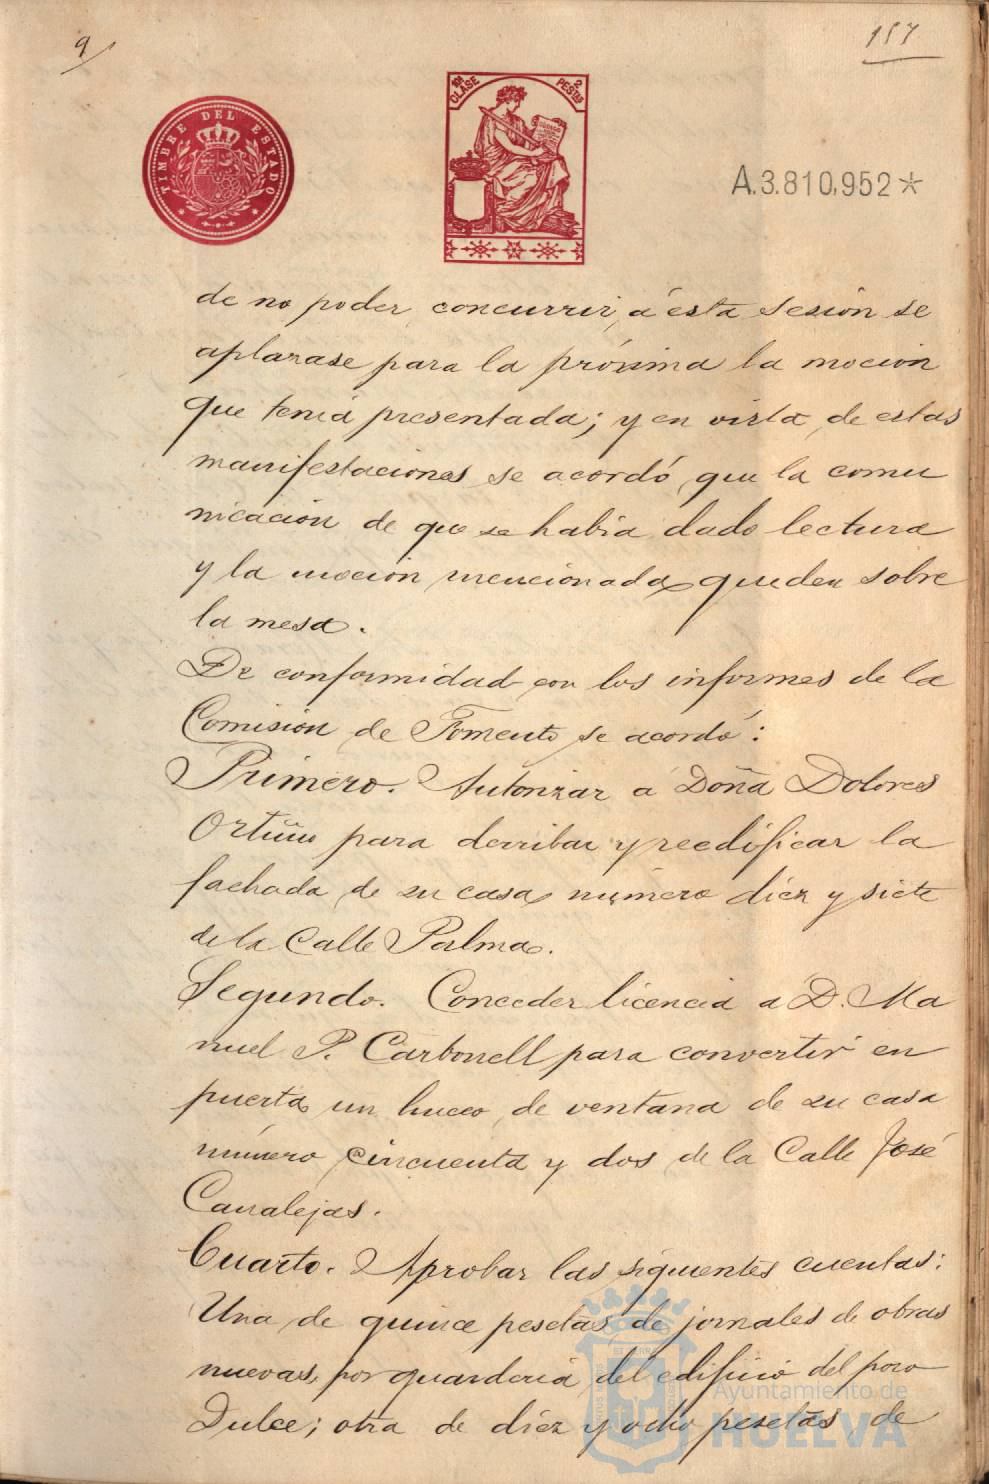 9
157
TIMBRE DEL ESTADO
11ª CLASE
2 PESETAS
A.3.810,952*
de no poder concurrir, á ésta sesión se
aplazase para la próxima la moción
que tenia presentada; y en vista, de estas
manifestaciones se acordó, que la comu
nicación de que se habia dado lectura
y la moción mencionada queden sobre
la mesa.
De conformidad con los informes de la
Comisión de Fomento se acordó:
Primero. Autorizar á Doña Dolores
Ortuño para derribar y reedificar la
fachada de su casa número diez y siete
de la Calle Palma.
Segundo. Conceder licencia á D. Ma
nuel P. Carbonell para convertir en
puerta un hueco de ventana de su casa
número cincuenta y dos de la Calle José
Canalejas.
Cuarto. Aprobar las siguientes cuentas:
Una de quince pesetas de jornales de obras
nuevas, por guarderia del edificio del pozo
Dulce; otra de diez y ocho pesetas de
Ayuntamiento de
HUELVA